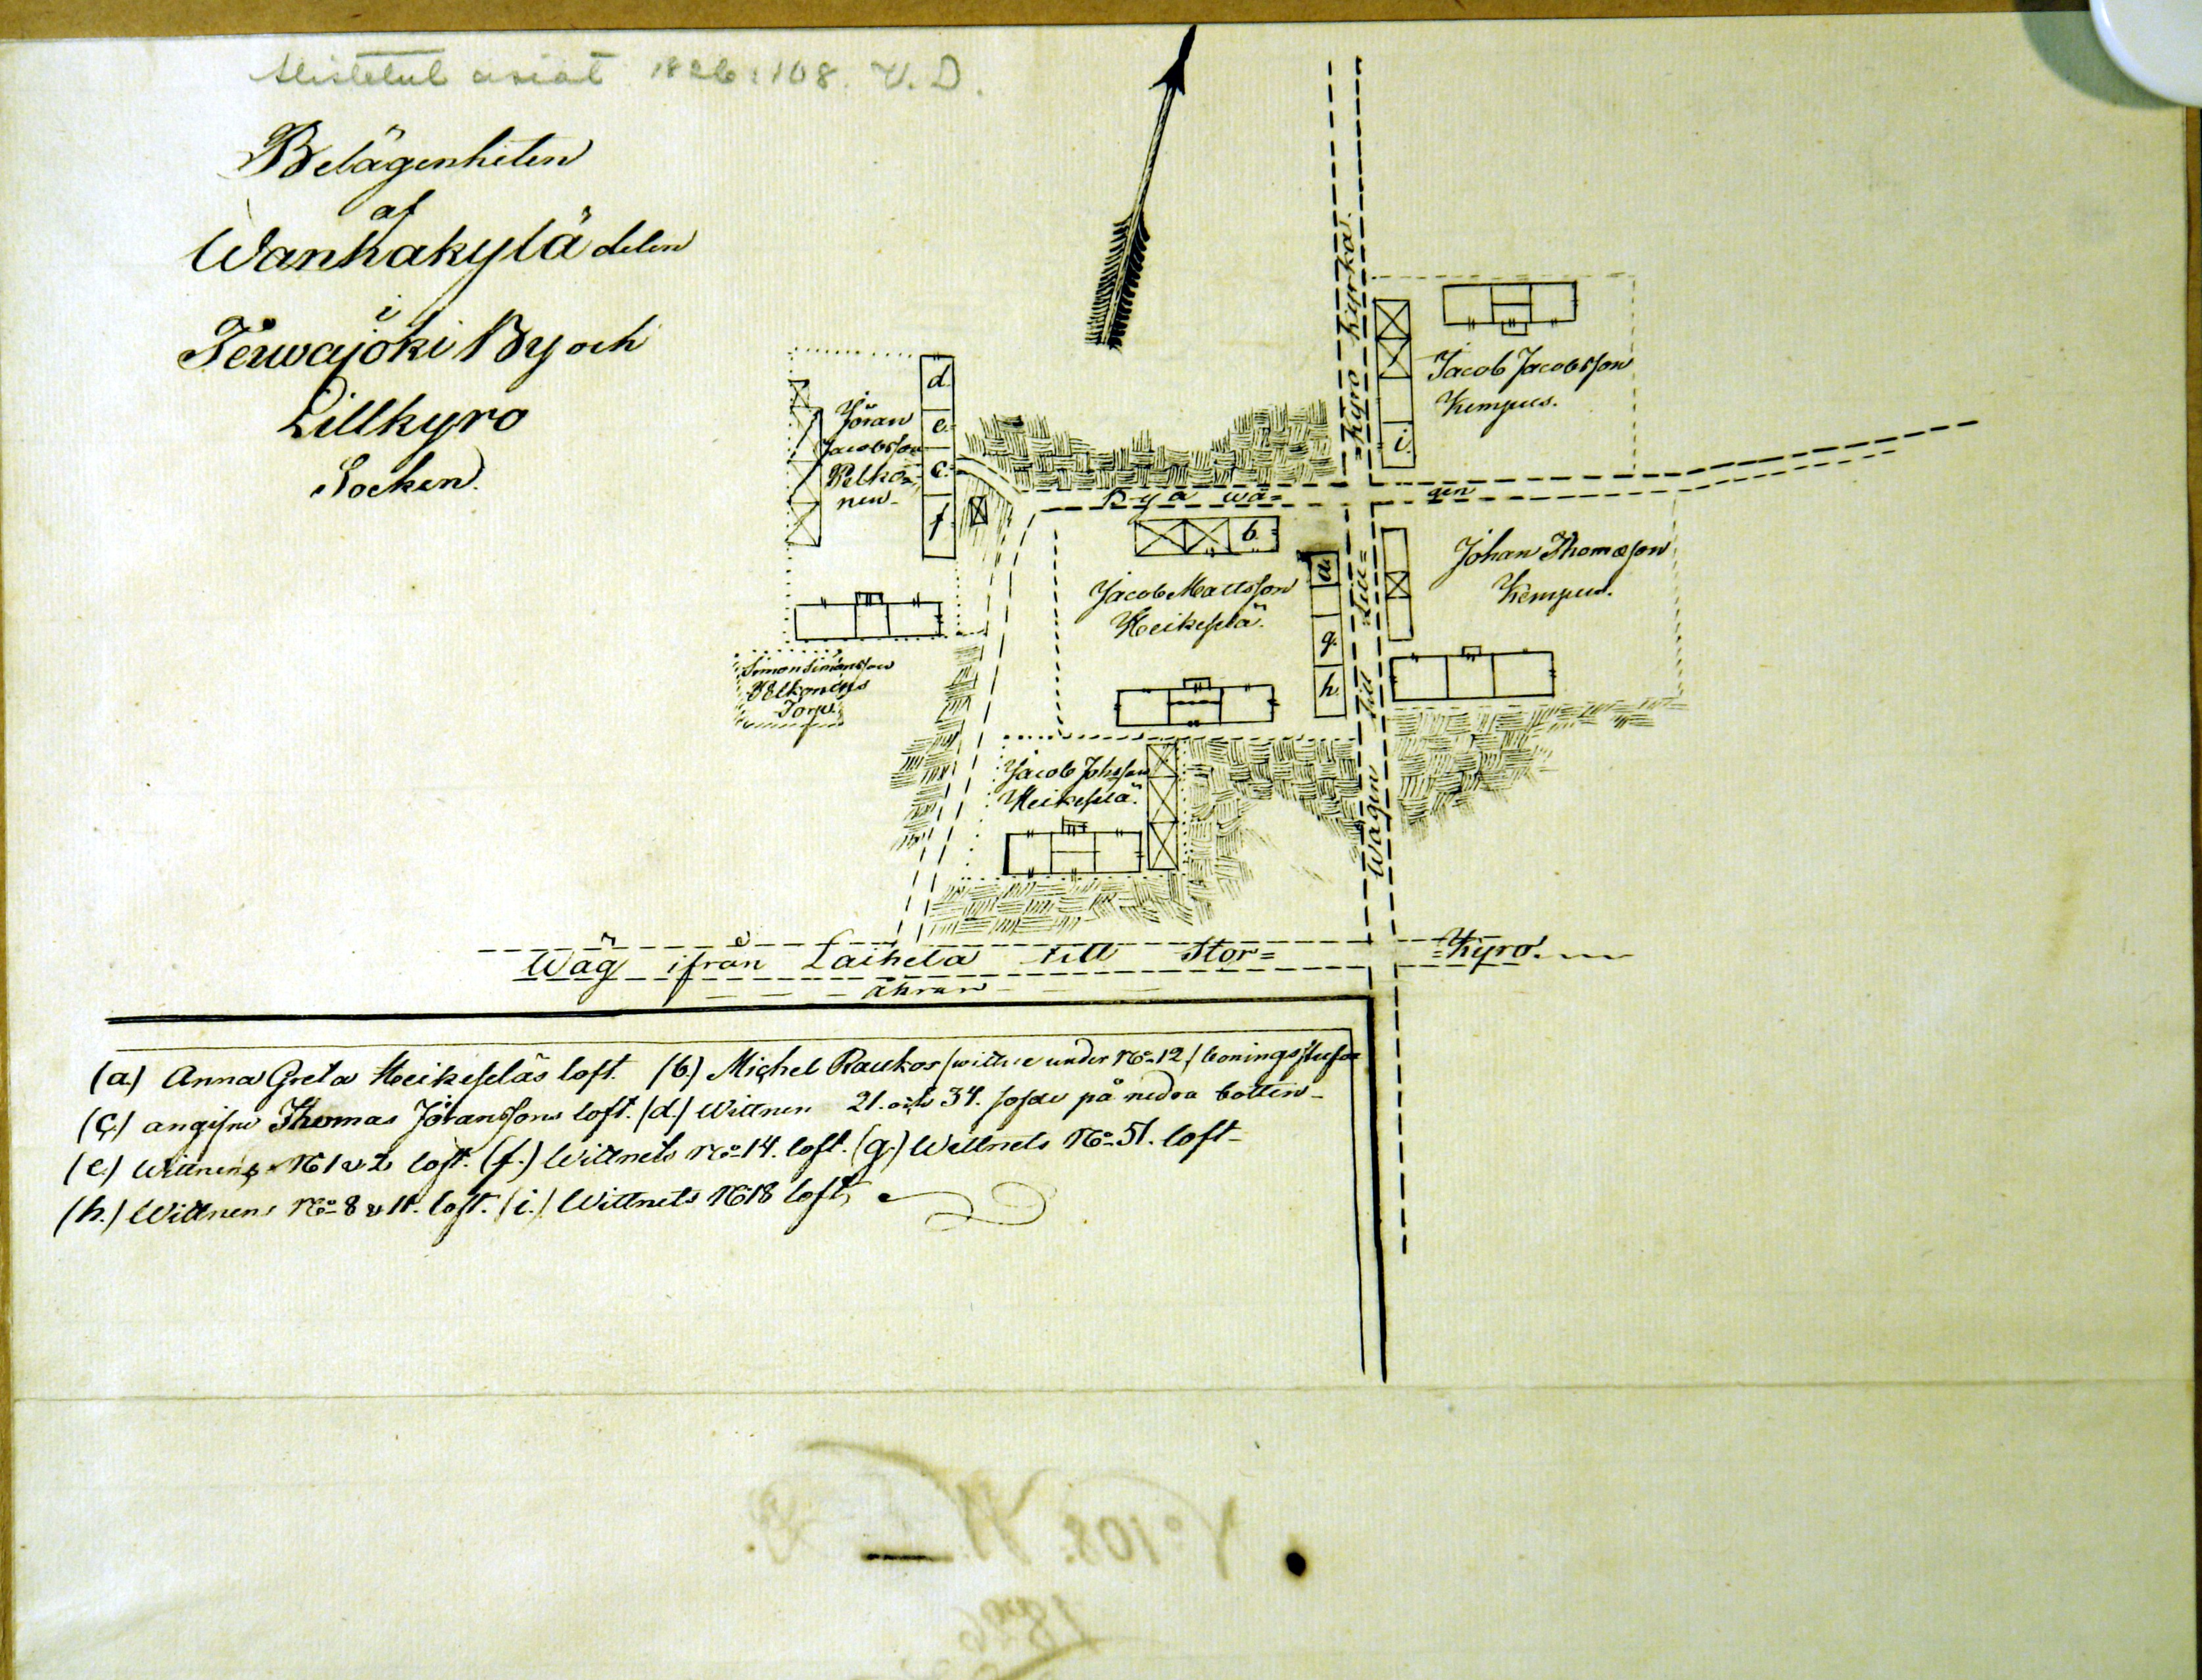 Alistetut asiat 1826:108. V.D.
Belägenheten
af
Wanhakylä delen
i
Terwajoki By och
Lillkyro
Socken.
d.
e.
c.
f.
Jöran
Jacobsson
Pelko=
nen.
Simon Simonsson
Pelkonens
Torp.
Bya wä=
gen
b.
a.
g.
h.
i.
Jacob Mattsson
Heikkilä.
Jacob Johsson
Heikkilä.
Jacob Jacobsson
Kempus.
Johan Thomasson
Kempus.
Wägen till Lill=
=kyro kyrka.
Wäg ifrån Laihela till Stor=
=Kyro.
åkrar
(a) Anna Greta Heikkiläs loft. (b) Michel Raukos /wittne under No 12/ boningsstuga
(c) angifne Thomas Jöranssons loft. (d.) Wittnen 21. och 34. sofde på nedra botten
(e) Wittnens No 1 & 2 loft. (f.) Wittnets No 14. loft. (g.) Wittnets No 51. loft
(h.) Wittnens No 8 & 11. loft. (i.) Wittnets No 18 loft,
No 108.
1826